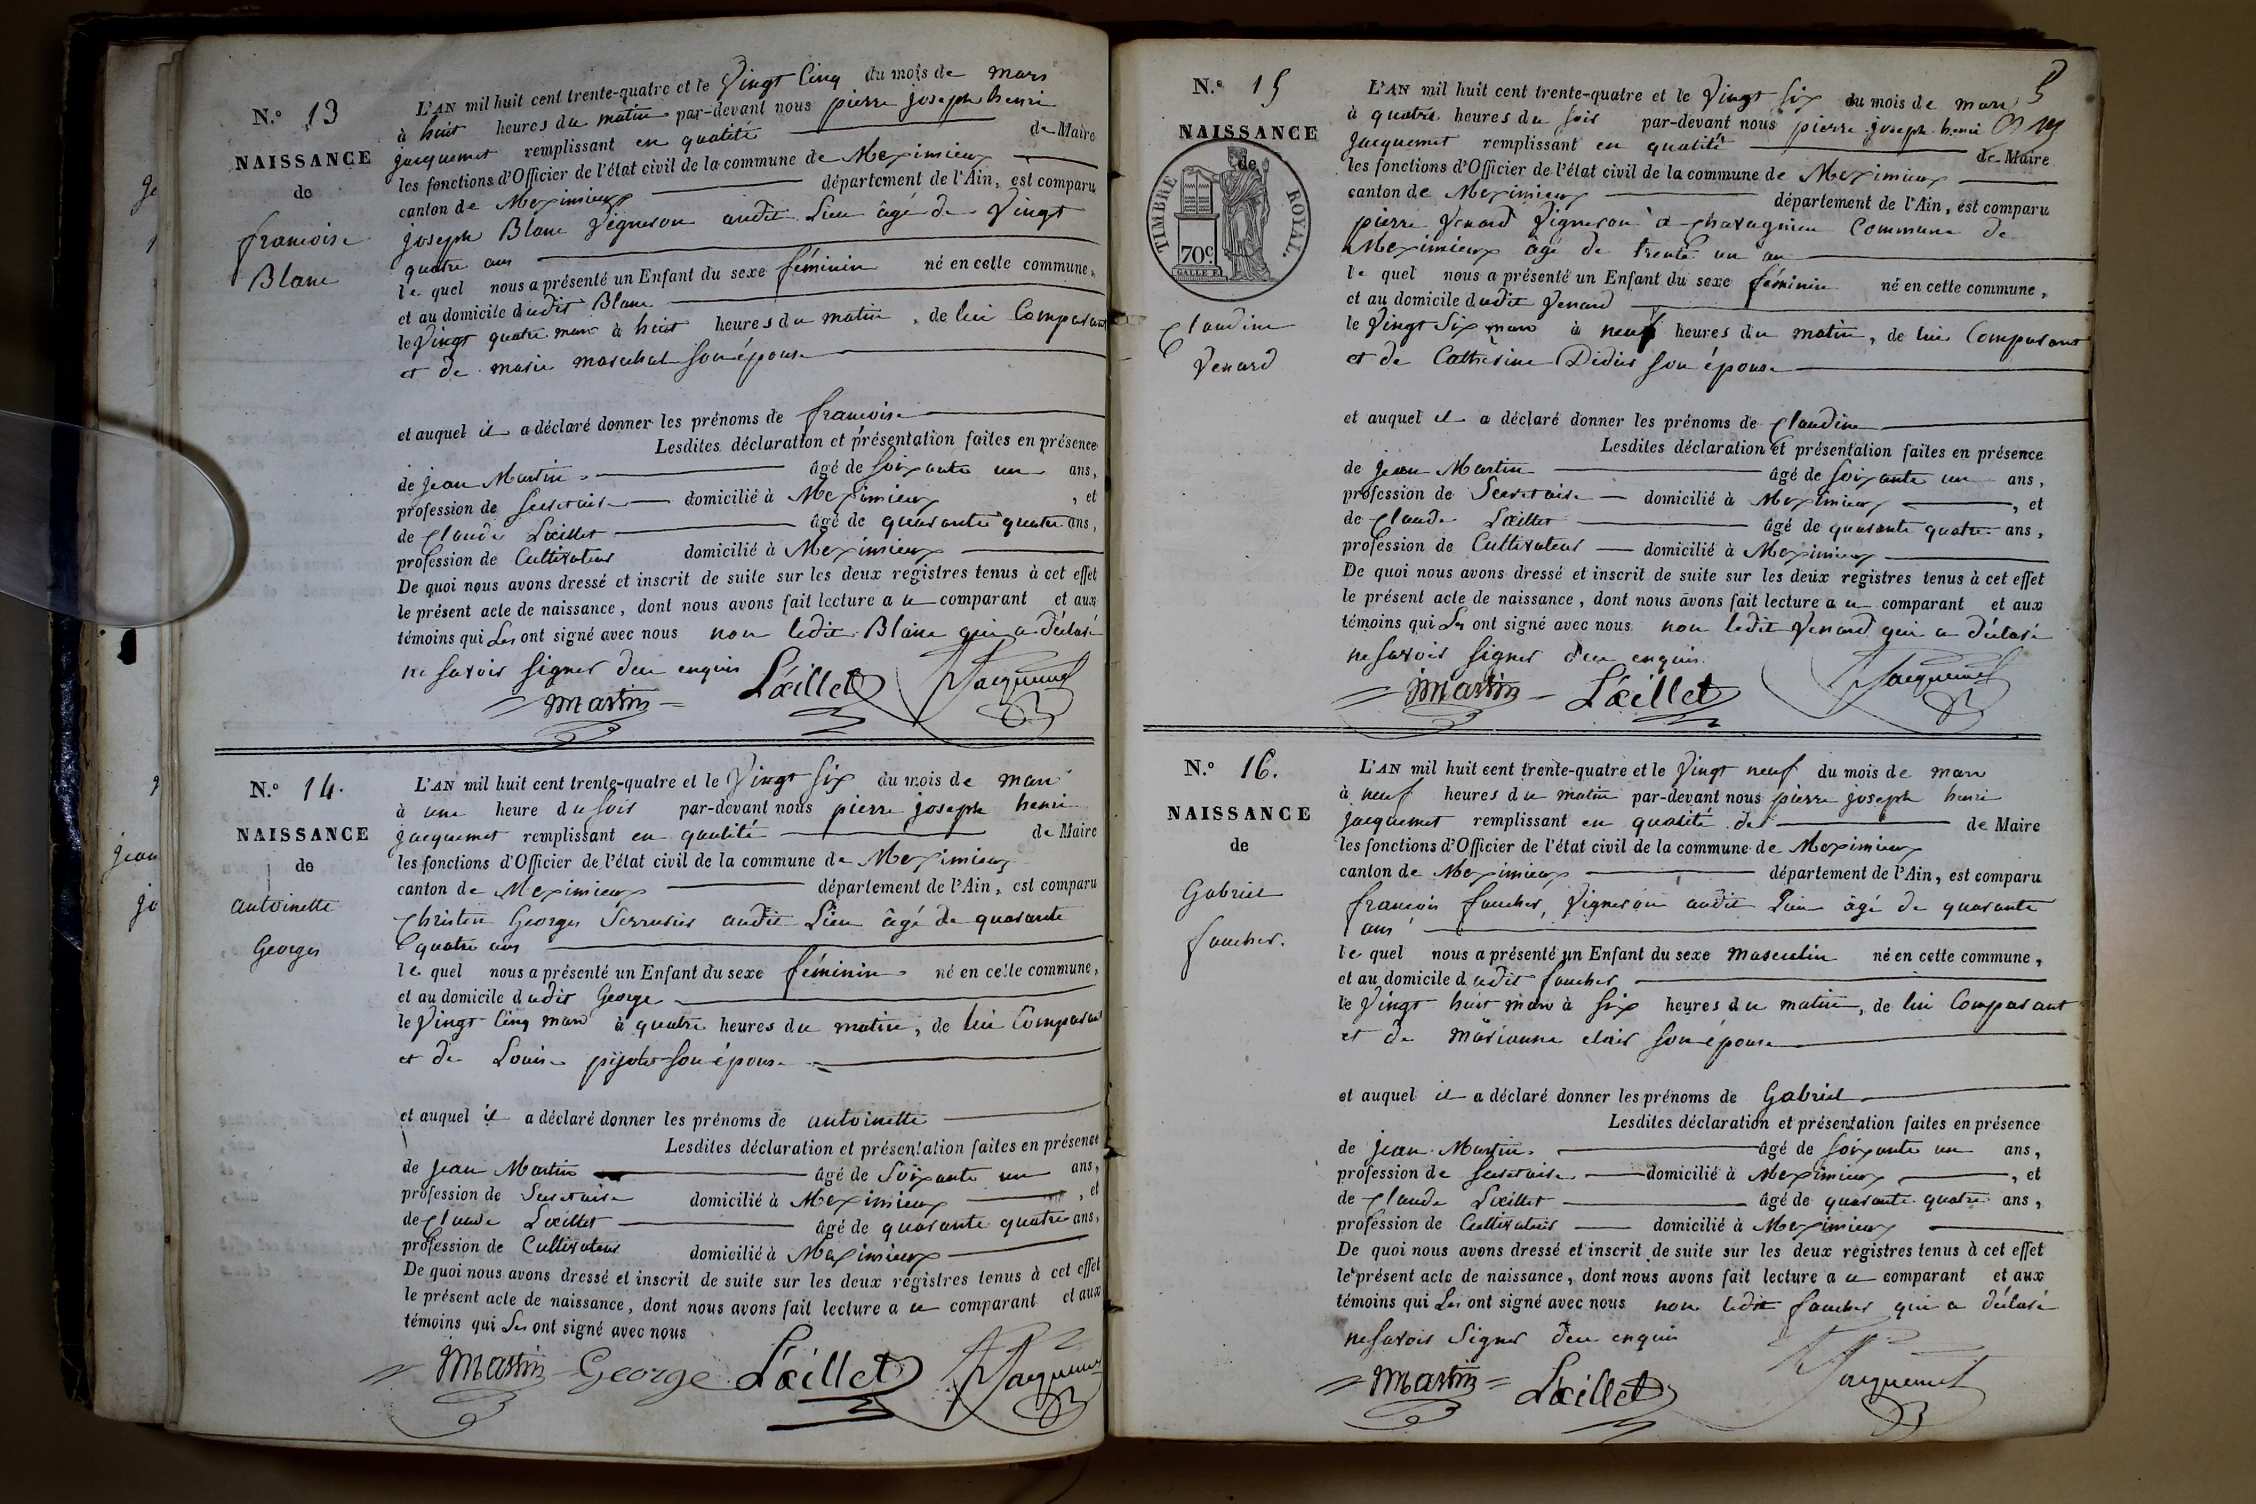 N.º 13
NAISSANCE
de
francoise
Blanc
L'AN mil huit cent trente-quatre et le Vingt Cinq du mois de mars
à huit heures du matin par-devant nous pierre joseph henri
jacquemet remplissant en qualité de Maire
les fonctions d'Officier de l'état civil de la commune de Meximieux
canton de Meximieux département de l'Ain, est comparu
joseph Blanc Vigneron audit Lieu âgé de Vingt
quatre ans
le quel nous a présenté un Enfant du sexe féminin né en cette commune,
et au domicile dudit Blanc
le Vingt quatre mars à huit heures du matin, de lui Comparant
et de marie marechal son épouse
et auquel il a déclaré donner les prénoms de francoise
Lesdites déclaration et présentation faites en présence
de jean Martin âgé de soixante un ans,
profession de Secretaire domicilié à Meximieux, et
de Claude Lœillet âgé de quarante quatre ans,
profession de Cultivateur domicilié à Meximieux
De quoi nous avons dressé et inscrit de suite sur les deux registres tenus à cet effet
le présent acte de naissance, dont nous avons fait lecture au comparant et aux
témoins qui Les ont signé avec nous non ledit Blanc qui a déclaré
ne savoir signer deu enquis
Martin Lœillet Jacquemet
N.º 14.
NAISSANCE
de
antoinette
Georges
L'AN mil huit cent trente-quatre et le Vingt six du mois de mars
à une heure du soir par-devant nous pierre joseph henri
jacquemet remplissant en qualité de Maire
les fonctions d'Officier de l'état civil de la commune de Meximieux
canton de Meximieux département de l'Ain, est comparu
Christin Georges Serrurier audit Lieu âgé de quarante
quatre ans
le quel nous a présenté un Enfant du sexe féminin né en cette commune,
et au domicile dudit George
le Vingt Cinq mars à quatre heures du matin, de lui Comparant
et de Louise son épouse
et auquel il a déclaré donner les prénoms de antoinette
Lesdites déclaration et présentation faites en présence
de jean Martin âgé de Soixante un ans,
profession de Secretaire domicilié à Meximieux, et
de Claude Lœillet âgé de quarante quatre ans,
profession de Cultivateur domicilié à Meximieux
De quoi nous avons dressé et inscrit de suite sur les deux registres tenus à cet effet
le présent acte de naissance, dont nous avons fait lecture au comparant et aux
témoins qui Les ont signé avec nous
Martin George Lœillet Jacquemet
N.º 15
NAISSANCE
de
TIMBRE ROYAL.
70c.
Claudine
Venard
L'AN mil huit cent trente-quatre et le Vingt six du mois de mars
à quatre heures du soir par-devant nous pierre joseph henri
jacquemet remplissant en qualité de Maire
les fonctions d'Officier de l'état civil de la commune de Meximieux
canton de Meximieux département de l'Ain, est comparu
pierre Venard Vigneron à chavagnieu Commune de
Meximieux âgé de trente un an
le quel nous a présenté un Enfant du sexe féminin né en cette commune,
et au domicile dudit Venard
le Vingt Six mars à neuf heures du matin, de lui Comparant
et de Catherine Didier son épouse
et auquel il a déclaré donner les prénoms de Claudine
Lesdites déclaration et présentation faites en présence
de jean Martin âgé de soixante un ans,
profession de Secretaire domicilié à Meximieux, et
de Claude Lœillet âgé de quarante quatre ans,
profession de Cultivateur domicilié à Meximieux
De quoi nous avons dressé et inscrit de suite sur les deux registres tenus à cet effet
le présent acte de naissance, dont nous avons fait lecture au comparant et aux
témoins qui Les ont signé avec nous non ledit Venard qui a déclaré
ne savoir signer deu enquis
Martin Lœillet Jacquemet
N.º 16.
NAISSANCE
de
Gabriel
faucher.
L'AN mil huit cent trente-quatre et le Vingt neuf du mois de mars
à neuf heures du matin par-devant nous pierre joseph henri
jacquemet remplissant en qualité de de Maire
les fonctions d'Officier de l'état civil de la commune de Meximieux
canton de Meximieux département de l'Ain, est comparu
francois faucher, Vigneron audit Lieu âgé de quarante
ans
le quel nous a présenté un Enfant du sexe masculin né en cette commune,
et au domicile dudit faucher
le Vingt huit mars à six heures du matin, de lui Comparant
et de marianne clair son épouse
et auquel il a déclaré donner les prénoms de Gabriel
Lesdites déclaration et présentation faites en présence
de jean Martin âgé de soixante un ans,
profession de Secretaire domicilié à Meximieux, et
de Claude Lœillet âgé de quarante quatre ans,
profession de Cultivateur domicilié à Meximieux
De quoi nous avons dressé et inscrit de suite sur les deux registres tenus à cet effet
le présent acte de naissance, dont nous avons fait lecture au comparant et aux
témoins qui Les ont signé avec nous non ledit faucher qui a déclaré
ne savoir signer deu enquis
Martin Lœillet Jacquemet